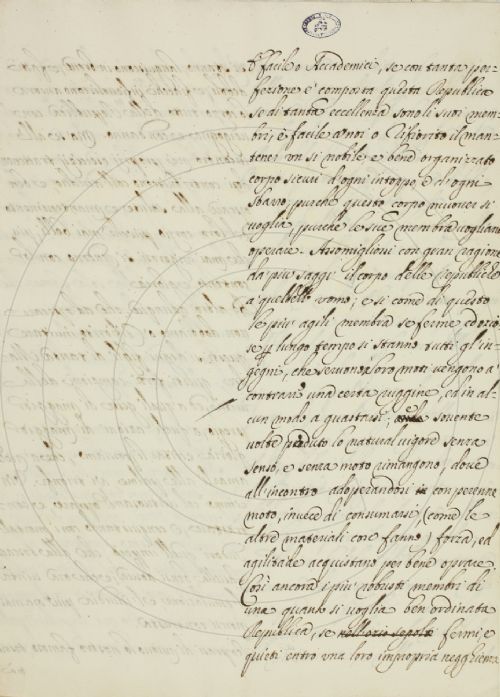 È facile o Accademici, se con tanta per-
fezione è composta questa Republica
se di tanta eccellenza sono li suoi mem-
bri, è facile a noi o Rifiorito il man-
tener un si nobile e bene organizato
corpo sicuri d'ogni intoppo, e d'ogni
sbavo, purche questo corpo muover si
voglia, purche le sue membra vogliano
operare. Assomiglioni con gran ragione
da più saggi il corpo delle Republiche
a quello dell' vomo; e si come di questo
le più agili membra se ferme, ed ozio
se p lungo tempo si stanno tutti gl'in-
gegni, che servono a' loro moti vengono à
contrarre una certa ruggine, ed in al-
cun modo a guastarsi; e sovente
volte perduto lo natural vigore senza
senso, e senza moto rimangono, dove
all'incontro adoperandosi con perenne
moto, invece di consumarsi, (come le
altre materiali cose fanno) forza, ed
agilità de acquistano per bene oprare.
Così ancora i più robusti membri di
una quanto si voglia ben' ordinata
Republica, se nell'ozio sepolti fermi, e
quieti entro una loro impropria negghienza